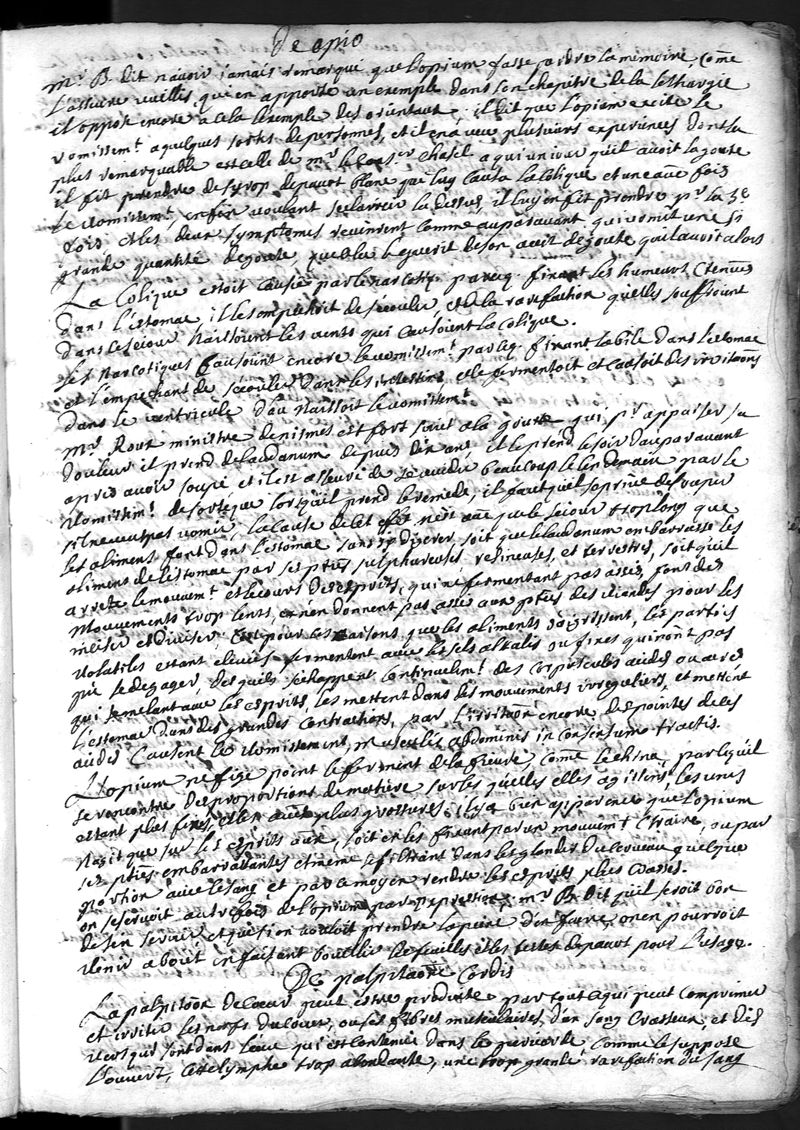 De opio
Mr. B. dit n'avoir jamais remarqué que l'opium fasse perdre la memoire, come
qui en apporte un exemple dans son chapitre de la lethargie
il oppose encore a cela l'exemple des orientaux. il dit que l'opium excite le
vomissemt. a quelques sortes de personnes, et il en a veu plusieurs experiences dont la
plus remarquable est celle de mr. le a qui un jour qu'il avoit la goute
il fit prendre de syrop de pavot blanc qui luy causa la colique et une autre fois
le vomissemt. enfin voulant seclaircir la dessus, il luy en fit prendre pr. la 3e
fois et les deux symptomes revinrent comme auparavant qui vomit une si
grande quantité de qu'elle le guerit de son acces de goute quil avoit alors
La Colique estoit causée par le narcotiq. parceq. fixant les humeurs Ctenues
dans l'estomac il les empechoit de secouler, et de la rarefaction qu'elles souffroient
dans le sejour naissoient les vents qui causoient la colique.
les Narcotiques causoient encore le vomissemt. parceq. fixant la bile dans l'estomac
et l'empechant de secouler dans les intestins, elle fermentoit et causoit des irritaons
dans le ventricule d'ou naissoit le vomissemt.
Mr. Roux ministre de nismes est fort sujet a la goutte, qui pr. appaiser sa
douleur il prend de laudanum depuis dix ans, et le prend le soir auparavant
apres avoir soupé et il est asseuré de beaucoup le lendemain par le
vomissemt. de sorteque lorsquil prend le remede, il faut quil se prive de souper
sil ne veut pas vomir, la cause de cet effet n'est que le sejour trop long que
les alimens font dans l'estomac sans se digerer, soit que le laudanum embarrasse les
alimens de l'estomac par ses pties sulphureuses, resineuses, et terrestres, soit quil
arrete le mouvemt. et le cours des esprits, qui ne fermentant pas assés, font des
mouvements trop lents, et n'en donnent pas assés aux pties des viandes pour les
et diviser, Et pour les raisons que les aliments s'aigrissent, les parties
volatiles estant fermentent avec les sels alkalis ou fixes qui n'ont pas
pu se degager, desquels s'echappent continuellemt. des corpuscules acides ou acres
qui se melant avec les esprits, les mettent dans les mouvements irreguliers, et mettent
l'estomac dans des grandes contractions, par l'irritaon encore des pointes de ces
acides Causent le vomissement, musculis abdominis in consensum tractis.
L'opium ne fixe point le ferment de la fievre, comme le china, parcequ'il
se rencontre des proportions de matiere sur lesquelles elles agissent, les unes
estant plus fixes, et les autres plus grossieres, il y a bien apparence que l'opium
n'agit que sur les esprits soit en les fixant par un mouvemt. , ou par
ses pties embarrassantes et meme se filtrant dans les glandes du cerveau quelque
portion avec le sang et par ce moyen rendre les esprits plus crasses.
on se servoit autrefois de l'opium par expression, mr. B. dit qu'il seroit bon
de sen servir, et que si on vouloit prendre la peine d'en faire, on en pourroit
venir a bout en faisant bouillir les feuilles et les testes de pavot pour l'usage.
De palpitatione Cordis
La palpitaon de cœur peut estre produite par tout ce qui peut comprimer
et irriter les nerfs du cœur, ou ses fibres musculaires, d'un sang crasseux, et des
vers qui sont dans l'eau qui est contenue dans le pericarde comme le suppose
l'ouvert, cette lymphe trop abondante, une trop grande rarefaction du sang